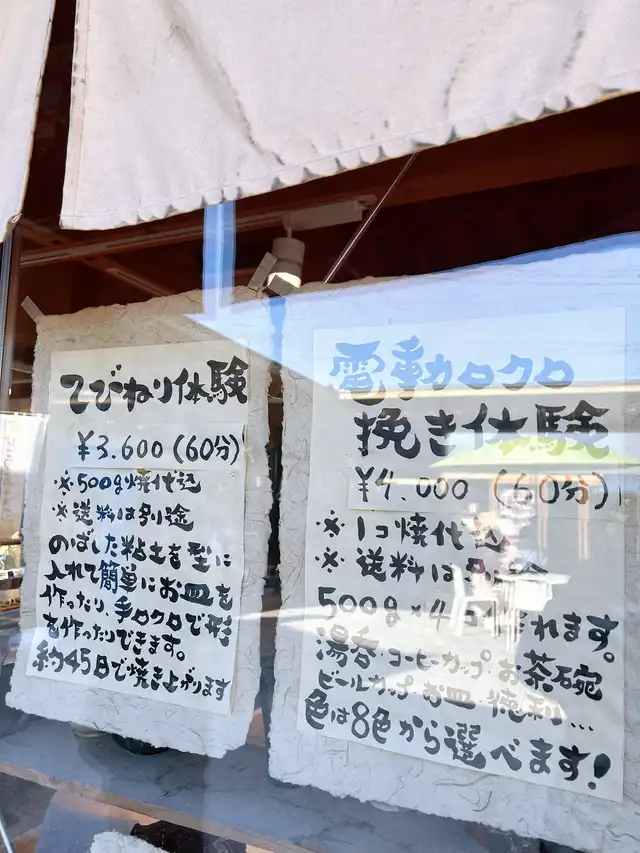 てびねり体験
¥3.600(60分)
※500g焼代込
※送料は別途
のばした粘土を型に
入れて簡単にお皿を
作ったり、手ロクロで形
を作ったりできます。
約45日で焼き上がります
電動ロクロ
挽き体験
¥4.000(60分)
※1コ焼代込
※送料は別途
500g×4コ作れます。
湯呑・コーヒーカップ・お茶碗
ビールカップ・お皿・徳利…
色は8色から選べます!